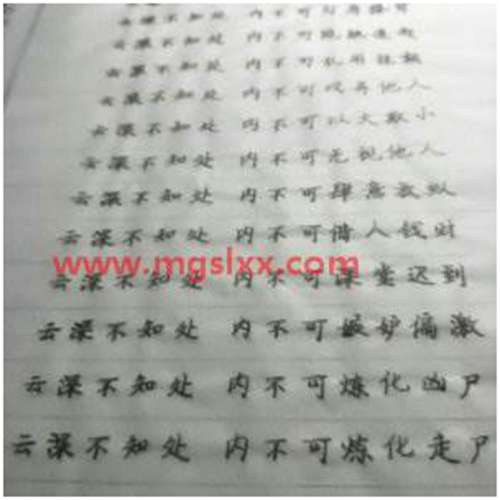 云深不知处 内不可
云深不知处 内不可
云深不知处 内不可
云深不知处 内不可叹弄他人
云深不知处 内不可以大欺小
云深不知处 内不可无视他人
云深不知处 内不可肆意放纵
云深不知处 内不可借人钱财
www.mgslxx.com
云深不知处 内不可课堂迟到
云深不知处 内不可嫉妒偏激
云深不知处 内不可炼化凶尸
云深不知处 内不可炼化走尸